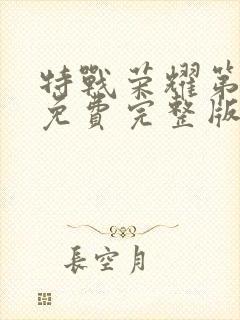 特戰荣耀第
免費完整版
長空月